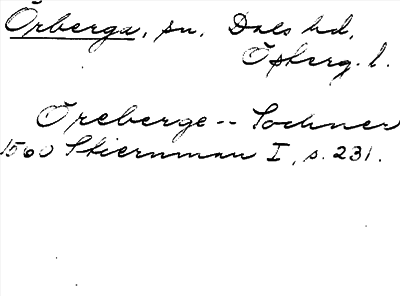 Örberga, sn. Dals hd,
Österg. l.
Öreberge -- Sochner
1560 Stiernman I, s. 231.